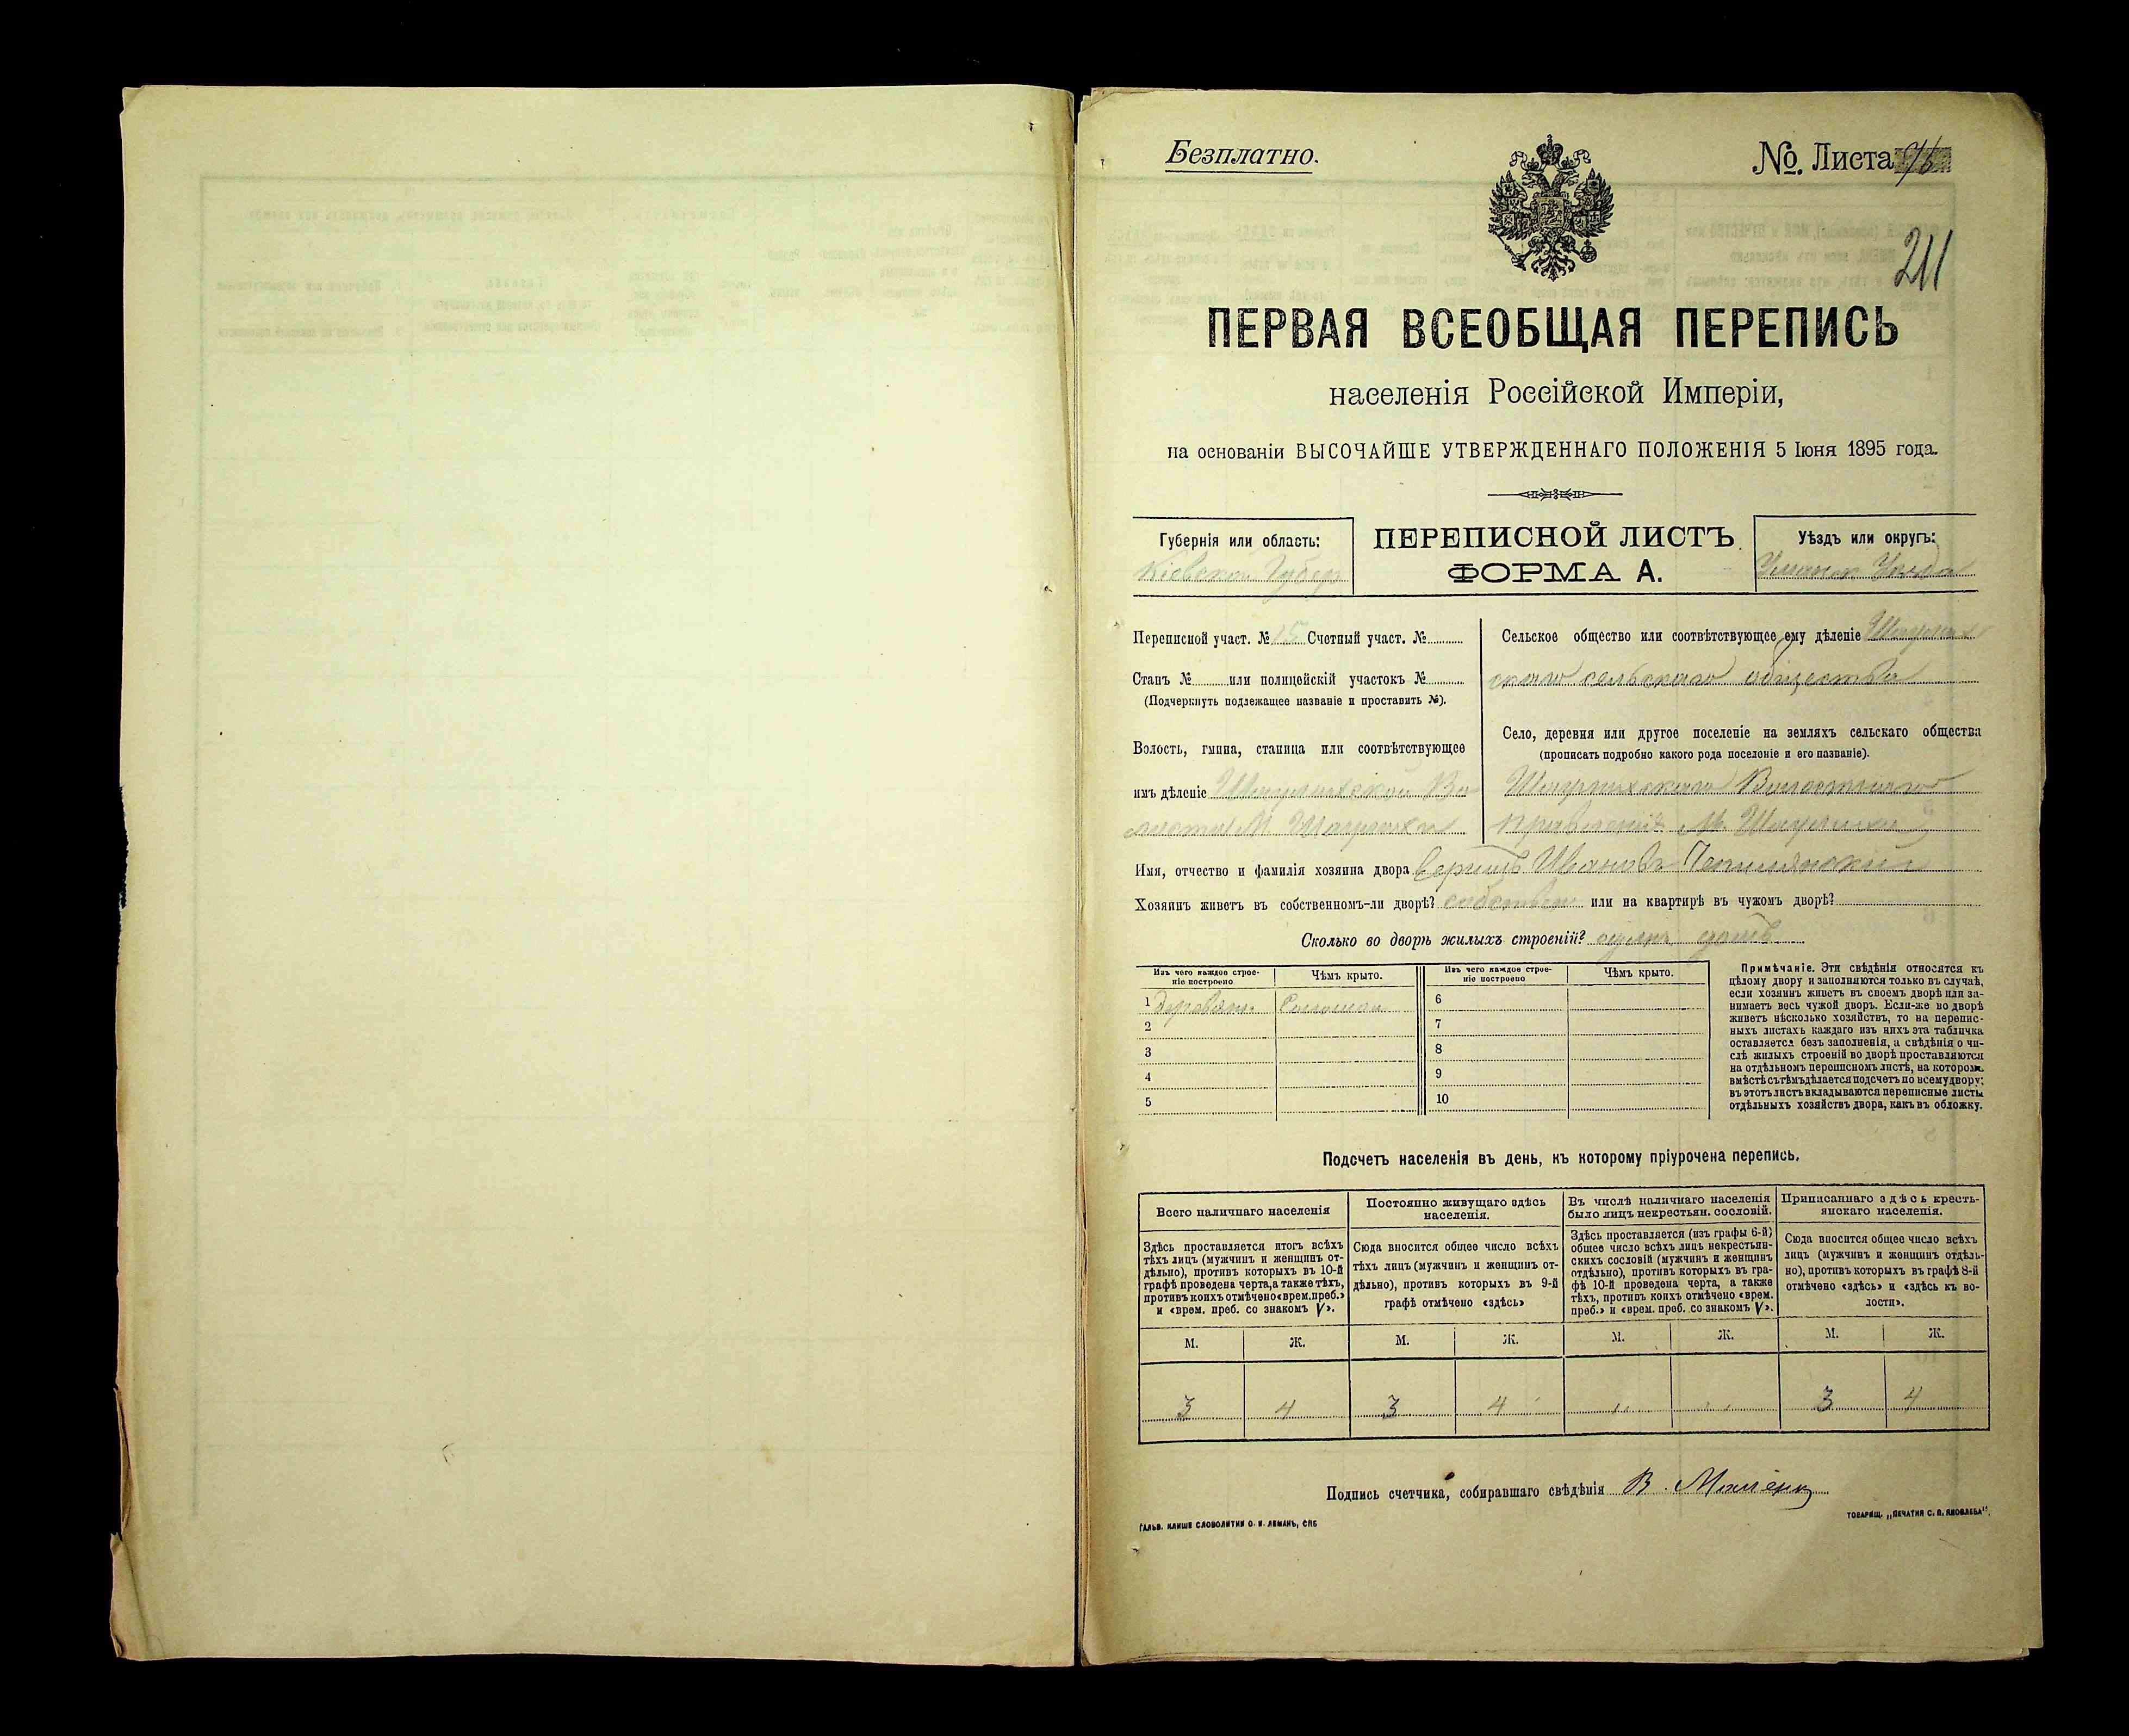 Безплатно.
№ Листа
211
ПЕРВАЯ ВСЕОБЩАЯ ПЕРЕПИСЬ
населенія Россійской Имперіи,
на основаніи ВЫСОЧАЙШЕ УТВЕРЖДЕННАГО ПОЛОЖЕНІЯ 5 Іюня 1895 года.
Губернія или область:
Кіевской Губер
ПЕРЕПИСНОЙ ЛИСТЪ
ФОРМА А.
Уѣздъ или округъ:
Уманск Уѣзда
Переписной участ. № 15 Счетный участ. №
Станъ № или полицейскій участокъ №
(Подчеркнуть подлежащее названіе и проставить №).
Волость, гмина, станица или соотвѣтствующее
имъ дѣленіе Шаулихской Во-
лости М. Шаулиха
Сельское общество или соотвѣтствующее ему дѣленіе Шаулих
скаго сельскаго общества
Село, деревня или другое поселеніе на земляхъ сельскаго общества
(прописать подробно какого рода поселеніе и его названіе).
Шаулихскаго Волостнаго
правленія М. Шаулихи
Имя, отчество и фамилія хозяина двора Ивановъ
Хозяинъ живетъ въ собственномъ-ли дворѣ? собствен или на квартирѣ въ чужомъ дворѣ?
Сколько во дворѣ жилыхъ строеній? одинъ домъ
Изъ чего каждое строе-
ніе построено
Чѣмъ крыто.
Изъ чего каждое строе-
ніе построено
Чѣмъ крыто.
1 деревян. Соломою
2
3
4
5
6
7
8
9
10
Примѣчаніе. Эти свѣдѣнія относятся къ
цѣлому двору и заполняются только въ случаѣ,
если хозяинъ живетъ въ своемъ дворѣ или за-
нимаетъ весь чужой дворъ. Если-же во дворѣ
живетъ нѣсколько хозяйствъ, то на перепис-
ныхъ листахъ каждаго изъ нихъ эта табличка
оставляется безъ заполненія, а свѣдѣнія о чи-
слѣ жилыхъ строеній во дворѣ проставляются
на отдѣльномъ переписномъ листѣ, на которомъ
вмѣстѣ съ тѣмъ дѣлается подсчетъ по всему двору;
въ этотъ листъ вкладываются переписные листы
отдѣльныхъ хозяйствъ двора, какъ въ обложку.
Подсчетъ населенія въ день, къ которому пріурочена перепись.
Всего наличнаго населенія
Постоянно живущаго здѣсь
населенія.
Въ числѣ наличнаго населенія
было лицъ некрестьян. сословій.
Приписаннаго здѣсь кресть-
янскаго населенія.
Здѣсь проставляется итогъ всѣхъ
тѣхъ лицъ (мужчинъ и женщинъ от-
дѣльно), противъ которыхъ въ 10-й
графѣ проведена черта, а также тѣхъ,
противъ коихъ отмѣчено «врем. преб.»
и «врем. преб. со знакомъ V».
Сюда вносится общее число всѣхъ
тѣхъ лицъ (мужчинъ и женщинъ от-
дѣльно), противъ которыхъ въ 9-й
графѣ отмѣчено «здѣсь»
Здѣсь проставляется (изъ графы 6-й)
общее число всѣхъ лицъ некрестьян-
скихъ сословій (мужчинъ и женщинъ
отдѣльно), противъ которыхъ въ гра-
фѣ 10-й проведена черта, а также
тѣхъ, противъ коихъ отмѣчено «врем.
преб.» и «врем. преб. со знакомъ V».
Сюда вносится общее число всѣхъ
лицъ (мужчинъ и женщинъ отдѣль-
но), противъ которыхъ въ графѣ 8-й
отмѣчено «здѣсь» и «здѣсь къ во-
лости».
М. Ж. М. Ж. М. Ж. М. Ж.
3 4 3 4 „ „ 3 4
Подпись счетчика, собиравшаго свѣдѣнія В.
ГАЛЬВ. КЛИШЕ СЛОВОЛИТНИ О. И. ЛЕМАНЪ, СПБ
ТОВАРИЩ. „ПЕЧАТНЯ С. П. ЯКОВЛЕВА".